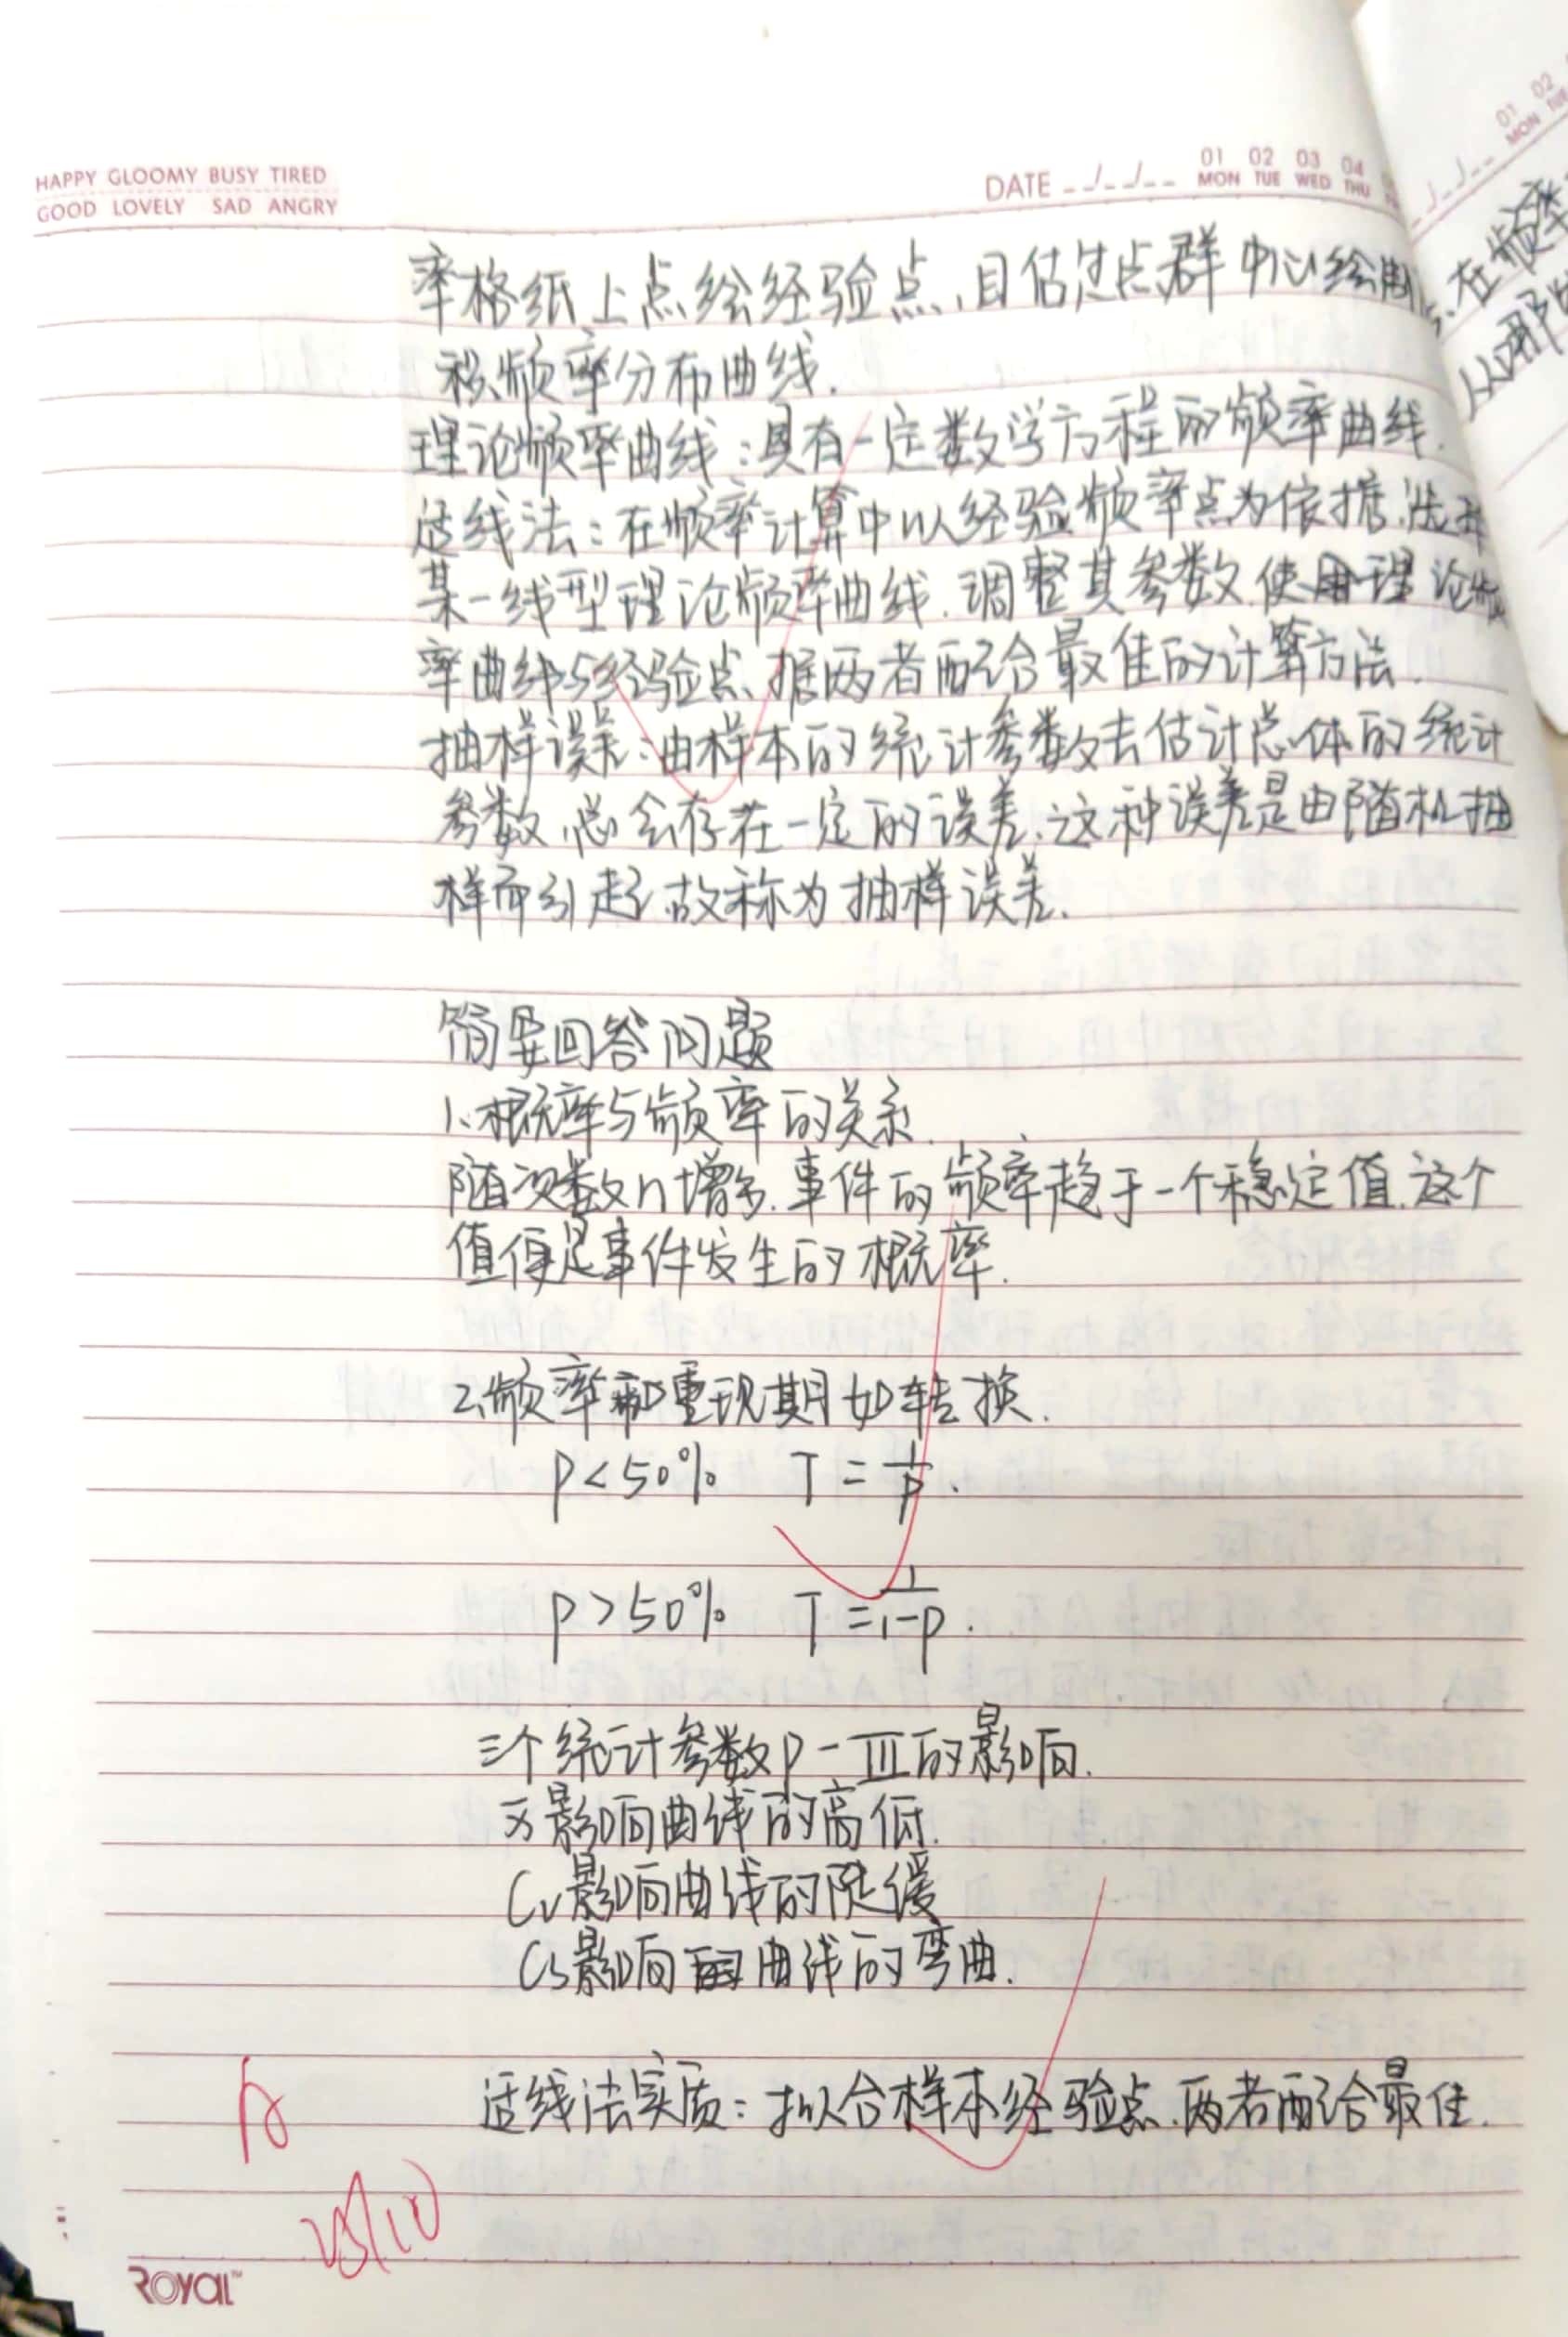 HAPPY GLOOMY BUSY TIRED
GOOD LOVELY SAD ANGRY
DATE
01 02 03 04
MON TUE WED THU
01 02
MON TUE
在频率
率格纸上点绘经验点、目估过点群中心绘制
积频率分布曲线.
理论频率曲线:具有一定数学方程的频率曲线.
适线法:在频率计算中以经验频率点为依据,选择
某一线型理论频率曲线.调整其参数使理论频
率曲线与经验点、据两者配合最佳的计算方法.
抽样误差:由样本的统计参数去估计总体的统计
参数,总会存在一定的误差.这种误差是由随机抽
样而引起,故称为抽样误差.
简要回答问题
1.概率与频率的关系.
随次数n增多.事件的频率趋于一个稳定值.这个
值便是事件发生的概率.
2、频率和重现期如转换.
P<50% T=1/P.
P>50% T=1/1-P.
三个统计参数P-III的影响.
x̄影响曲线的高低.
Cv影响曲线的陡缓
Cs影响曲线的弯曲.
适线法实质:拟合样本经验点.两者配合最佳.
A
ROYAL™